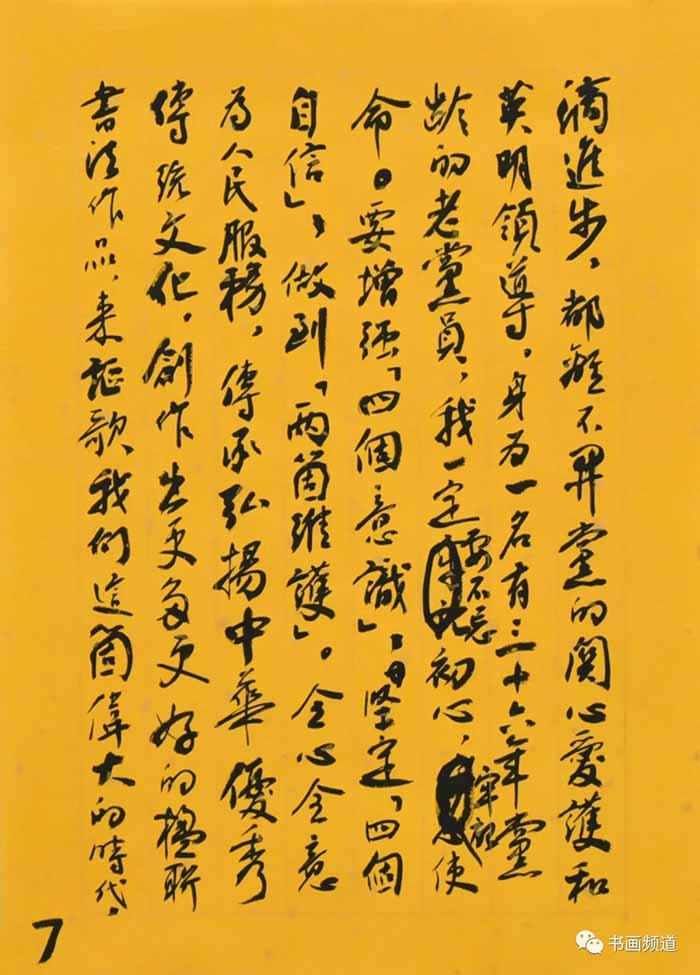 滴進步，都離不開黨的關心愛護和
英明領導。身为一名有三十六年黨
齡的老黨員，我一定要不忘初心，牢記使
命。要增强「四個意識」，堅定「四個
自信」，做到「两箇維護」。全心全意
為人民服務，傳承弘揚中華優秀
傳統文化，創作出更多更好的楹聯
書法作品，来謳歌我们這箇偉大的時代，
7
书画频道